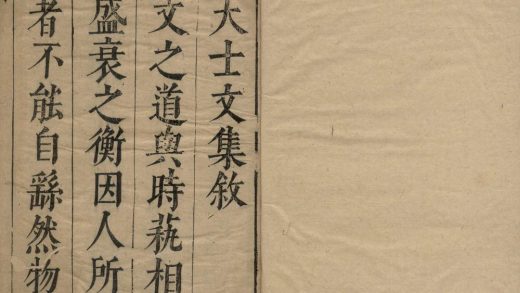 大士文集敘
文之道與時蓻相
盛衰之衡因人所
者不能自繇然物